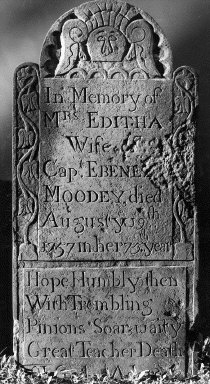 In Memory of
Mrs EDITHA
Wife of
Capt EBENEZ
MOODEY, died
August ye 19th
1757 in her 73 year
Hope Humbly then
With Trembling
Pinions Soar wait ye
Great Teacher Death